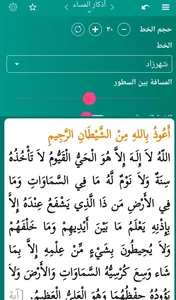 أذكار المساء
حجم الخط
٣٠
الخط
شهرزاد
المسافة بين السطور
أَعُوذُ بِاللهِ مِنَ الشَّيْطَانِ الرَّجِيمِ
اللّهُ لاَ إِلَهَ إِلاَّ هُوَ الْحَيُّ الْقَيُّومُ لاَ تَأْخُذُهُ
سِنَةٌ وَلاَ نَوْمٌ لَّهُ مَا فِي السَّمَاوَاتِ وَمَا
فِي الأَرْضِ مَن ذَا الَّذِي يَشْفَعُ عِنْدَهُ إِلاَّ
بِإِذْنِهِ يَعْلَمُ مَا بَيْنَ أَيْدِيهِمْ وَمَا خَلْفَهُمْ
وَلاَ يُحِيطُونَ بِشَيْءٍ مِّنْ عِلْمِهِ إِلاَّ بِمَا
شَاء وَسِعَ كُرْسِيُّهُ السَّمَاوَاتِ وَالأَرْضَ وَلاَ
يَؤُودُهُ حِفْظُهُمَا وَهُوَ الْعَلِيُّ الْعَظِيمُ. [آية